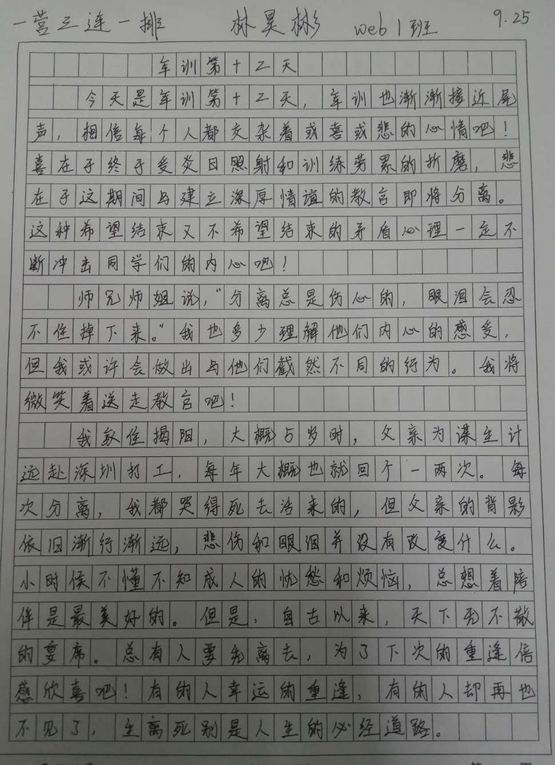 一营三连一排 林昊彬 web1班 9.25
军训第十二天
今天是军训第十二天，军训也渐渐接近尾
声，相信每个人都交杂着或喜或悲的心情吧！
喜在于终于受炎日照射和训练劳累的折磨，悲
在于这期间与建立深厚情谊的教官即将分离。
这种希望结束又不希望结束的矛盾心理一定不
断冲击同学们的内心吧！
师兄师姐说，“分离总是伤心的，眼泪会忍
不住掉下来。”我也多少理解他们内心的感受，
但我或许会做出与他们截然不同的行为。我将
微笑着送走教官吧！
我家住揭阳，大概5岁时，父亲为谋生计
远赴深圳打工，每年大概也就回个一两次。每
次分离，我都哭得死去活来的，但父亲的背影
依旧渐行渐远，悲伤和眼泪并没有改变什么。
小时候不懂不知成人的忧愁和烦恼，总想着陪
伴是最美好的。但是，自古以来，天下无不散
的宴席。总有人要先离去，为了下次的重逢倍
感欣喜吧！有的人幸运的重逢，有的人却再也
不见了，生离死别是人生的必经道路。